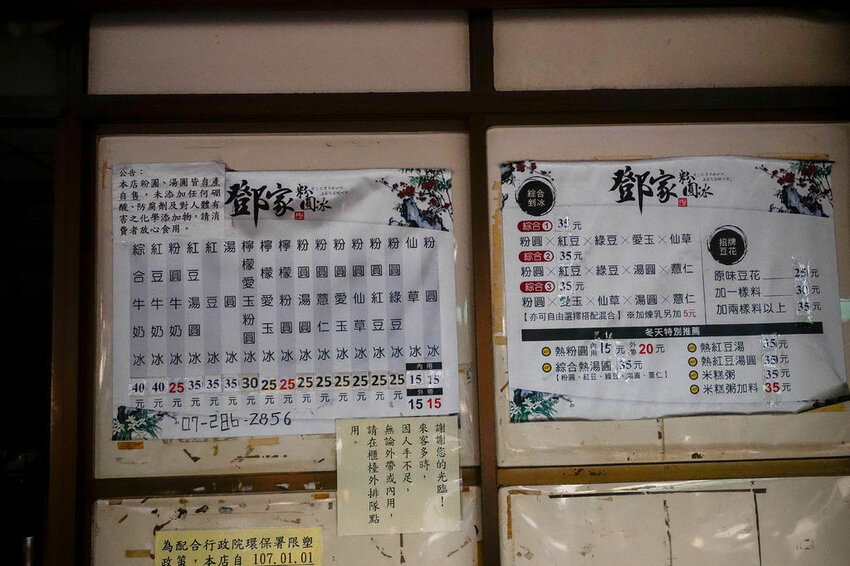 公告：
本店粉圓、湯圓皆自產
自售，未添加任何硼
酸、防腐劑及對人體有
害之化學添加物，請消
費者放心食用。
鄧家粉圓冰
粉圓冰 內用15元 外帶15
仙草冰 15元 15
粉圓綠豆冰 25元
粉圓紅豆冰 25元
粉圓仙草冰 25元
粉圓愛玉冰 25元
粉圓薏仁冰 25元
粉圓湯圓冰 25元
檸檬粉圓冰 25元
檸檬愛玉冰 25元
檸檬愛玉粉圓冰 30元
湯圓冰 35元
紅豆冰 35元
紅豆湯圓冰 35元
粉圓牛奶冰 25元
紅豆牛奶冰 40元
綜合牛奶冰 40元
07-286-2856
謝謝您的光臨！
來客多時，
因人手不足，
無論外帶或內用，
請在櫃檯外排隊點
用。
為配合行政院環保署限塑
政策，本店自 107.01.01
鄧家粉圓冰
綜合剉冰
綜合1 35元
粉圓×紅豆×綠豆×愛玉×仙草
綜合2 35元
粉圓×紅豆×綠豆×湯圓×薏仁
綜合3 35元
粉圓×愛玉×仙草×湯圓×薏仁
【亦可自由選擇搭配混合】※加煉乳另加5元
招牌豆花
原味豆花 25元
加一樣料 30元
加兩樣料以上 35元
冬天特別推薦
熱粉圓 內用15元 外帶20元
綜合熱湯圓 35元
【粉圓、紅豆、綠豆、湯圓、薏仁】
熱紅豆湯 35元
熱紅豆湯圓 35元
米糕粥 35元
米糕粥加料 35元